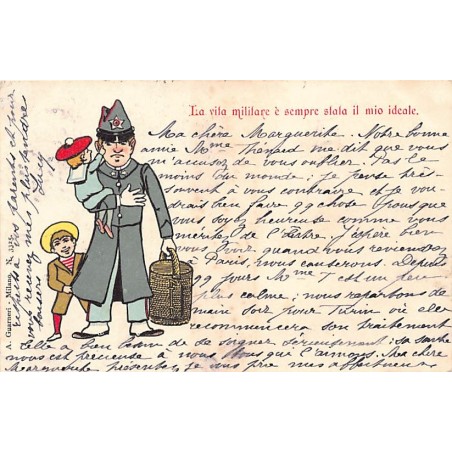 La vita militare è sempre stata il mio ideale.
Ma chère Marguerite. Notre bonne
amie Mme Thénard me dit que vous
m'accusez de vous oublier. Pas le
moins du monde; je pense très
souvent à vous contraire et je vou
drais bien faire qq chose pour que
vous soyez heureuse comme vous
méritez de l'être. J'espère bien
que quand vous reviendrez
à Paris, nous causerons. Depuis
qq jours Mme T est un peu
plus calme; nous repartons de
main soir pour Turin où elle
recommencera son traitement
Elle a bien besoin de se soigner sérieusement: sa santé
nous est précieuse à nous que l'aimons. Ma chère
Marguerite je vous prie mes affectueux
parents et pour
vous recevez mes plus tendres
baisers
A. Guarneri - Milano. N. 1215.